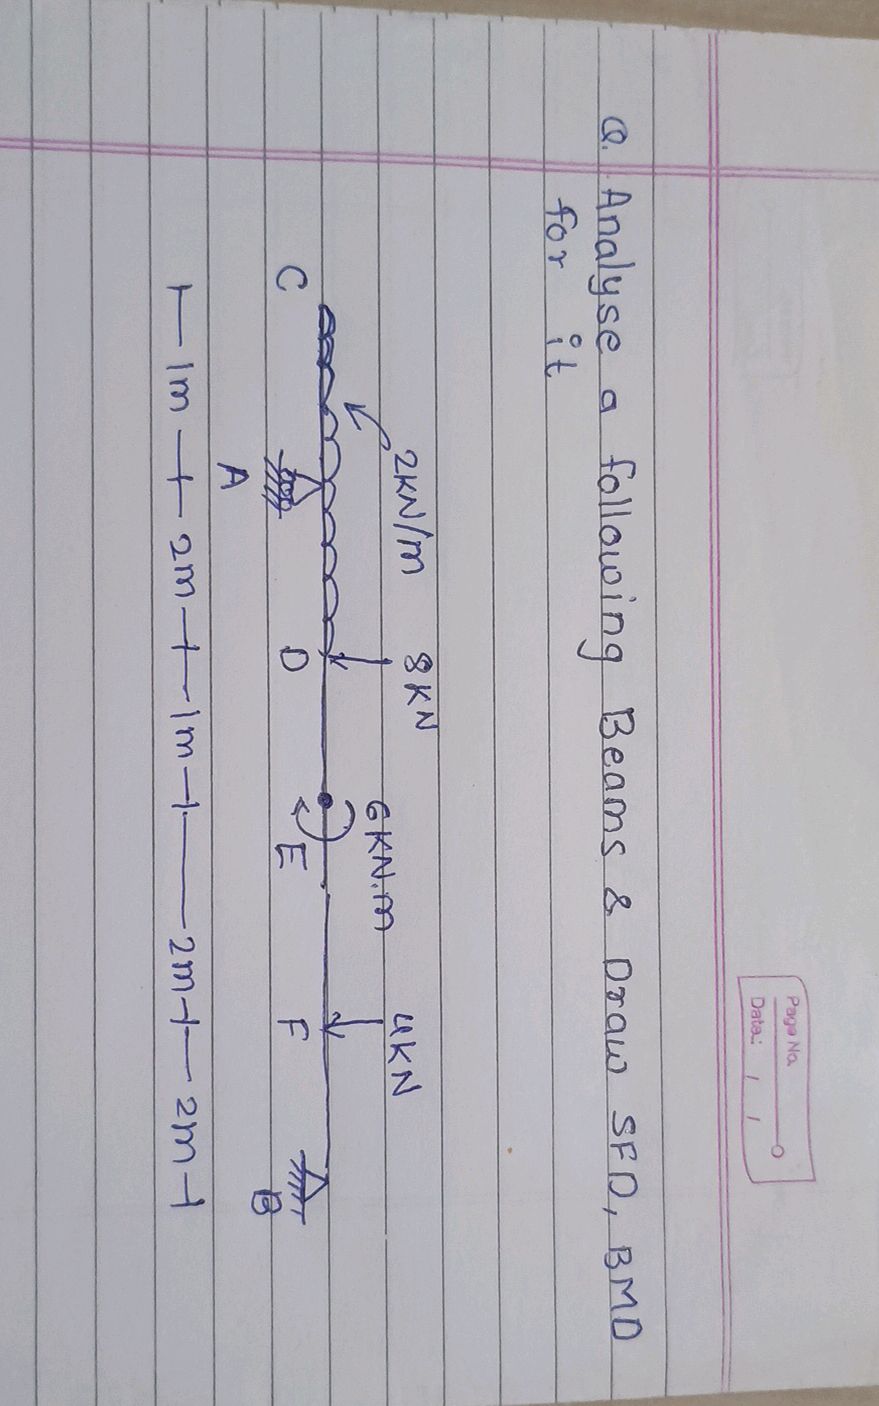 Page No.
Date: / /
Q. Analyse a following Beams & Draw SFD, BMD
for it
2KN/m 8KN 6KN.m 4KN
C A D E F B
1m 2m 1m 2m 2m